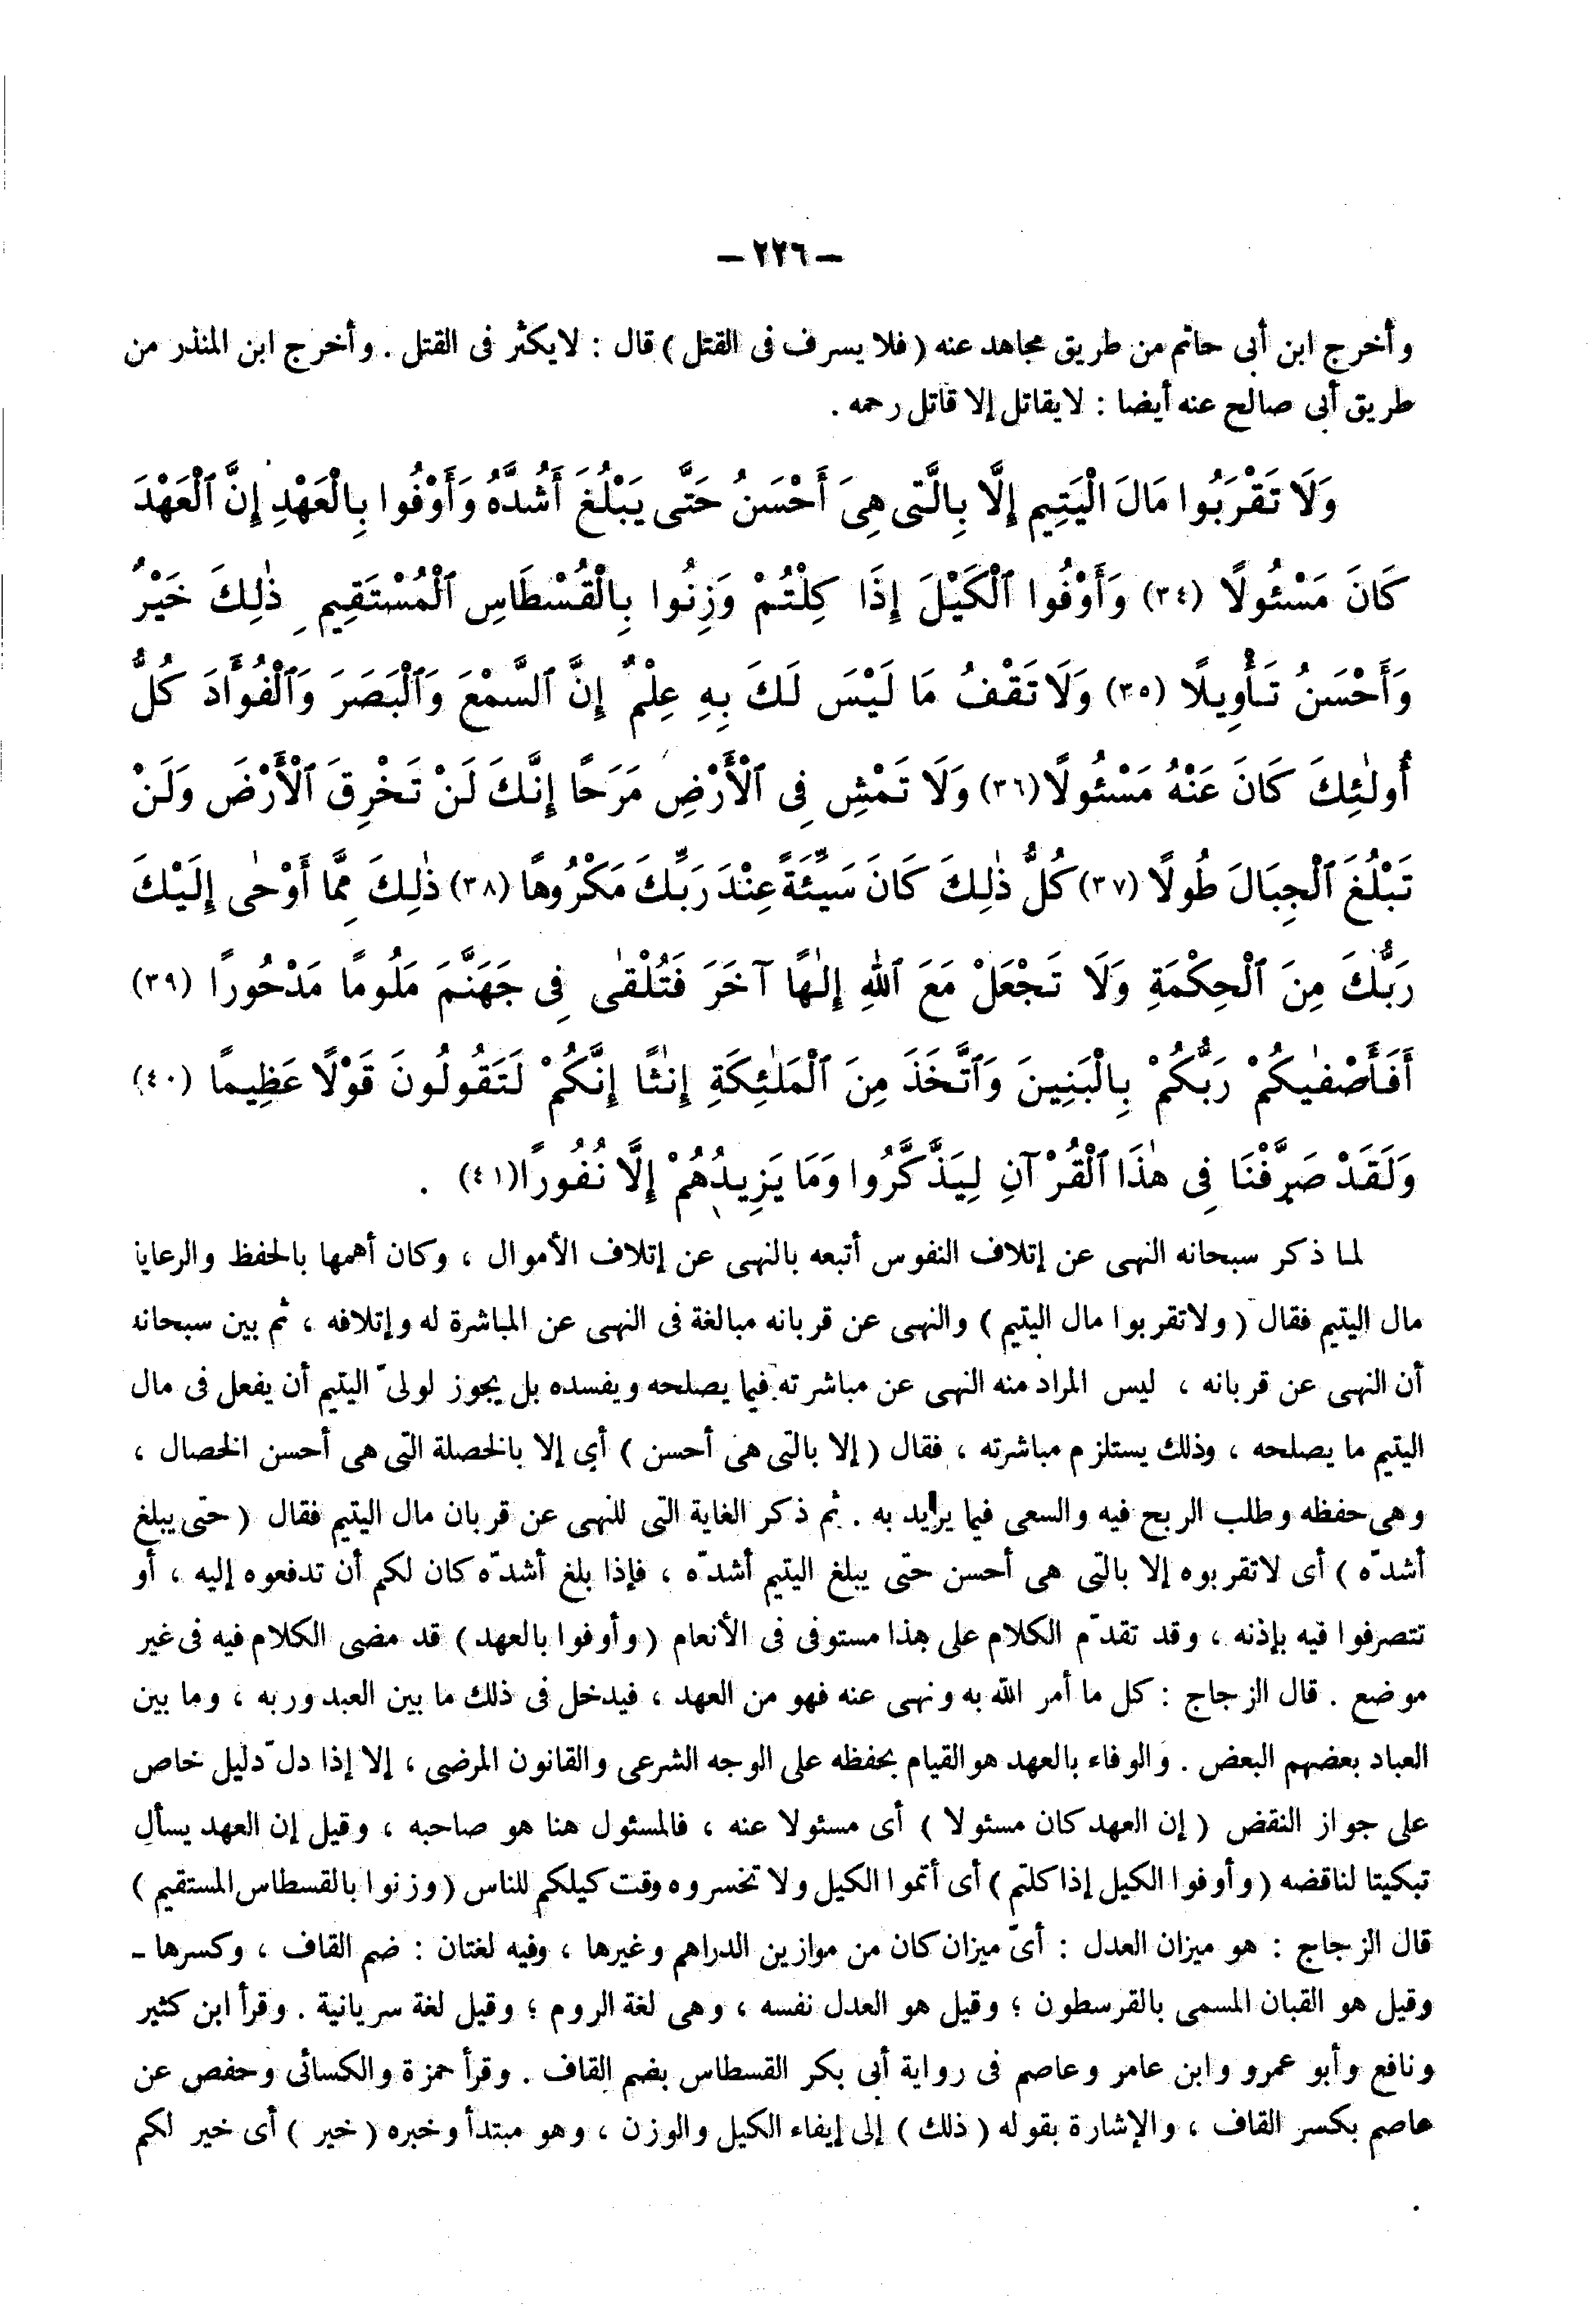 — ٢٢٦ —
وأخرج ابن أبى حاتم من طريق مجاهد عنه ( فلا يسرف فى القتل ) قال : لايكثر فى القتل . وأخرج ابن المنذر من
طريق أبى صالح عنه أيضا : لايقاتل إلا قاتل رحمه .
وَلَا تَقْرَبُوا مَالَ الْيَتِيمِ إِلَّا بِالَّتِى هِىَ أَحْسَنُ حَتَّى يَبْلُغَ أَشُدَّهُ وَأَوْفُوا بِالْعَهْدِ إِنَّ ٱلْعَهْدَ
كَانَ مَسْئُولًا (٣٤) وَأَوْفُوا ٱلْكَيْلَ إِذَا كِلْتُمْ وَزِنُوا بِالْقُسْطَاسِ ٱلْمُسْتَقِيمِ ذٰلِكَ خَيْرٌ
وَأَحْسَنُ تَأْوِيلًا (٣٥) وَلَا تَقْفُ مَا لَيْسَ لَكَ بِهِ عِلْمٌ إِنَّ ٱلسَّمْعَ وَٱلْبَصَرَ وَٱلْفُؤَادَ كُلُّ
أُولٰئِكَ كَانَ عَنْهُ مَسْئُولًا (٣٦) وَلَا تَمْشِ فِى ٱلْأَرْضِ مَرَحًا إِنَّكَ لَنْ تَخْرِقَ ٱلْأَرْضَ وَلَنْ
تَبْلُغَ ٱلْجِبَالَ طُولًا (٣٧) كُلُّ ذٰلِكَ كَانَ سَيِّئَةً عِنْدَ رَبِّكَ مَكْرُوهًا (٣٨) ذٰلِكَ مِمَّا أَوْحٰى إِلَيْكَ
رَبُّكَ مِنَ ٱلْحِكْمَةِ وَلَا تَجْعَلْ مَعَ ٱللهِ إِلٰهًا آخَرَ فَتُلْقٰى فِى جَهَنَّمَ مَلُومًا مَدْحُورًا (٣٩)
أَفَأَصْفٰيكُمْ رَبُّكُمْ بِالْبَنِينَ وَٱتَّخَذَ مِنَ ٱلْمَلٰئِكَةِ إِنٰثًا إِنَّكُمْ لَتَقُولُونَ قَوْلًا عَظِيمًا (٤٠)
وَلَقَدْ صَرَّفْنَا فِى هٰذَا ٱلْقُرْآنِ لِيَذَّكَّرُوا وَمَا يَزِيدُهُمْ إِلَّا نُفُورًا (٤١) .
لما ذكر سبحانه النهى عن إتلاف النفوس أتبعه بالنهى عن إتلاف الأموال ، وكان أهمها بالحفظ والرعاية
مال اليتيم فقال ( ولاتقربوا مال اليتيم ) والنهى عن قربانه مبالغة فى النهى عن المباشرة له وإتلافه ، ثم بين سبحانه
أن النهى عن قربانه ، ليس المراد منه النهى عن مباشرته فيما يصلحه ويفسده بل يجوز لولىّ اليتيم أن يفعل فى مال
اليتيم ما يصلحه ، وذلك يستلزم مباشرته ، فقال ( إلا بالتى هى أحسن ) أي إلا بالخصلة التى هى أحسن الخصال ،
وهى حفظه وطلب الربح فيه والسعى فيما يزايد به . ثم ذكر الغاية التى للنهى عن قربان مال اليتيم فقال ( حتى يبلغ
أشدّه ) أى لاتقربوه إلا بالتى هى أحسن حتى يبلغ اليتيم أشدّه ، فإذا بلغ أشدّه كان لكم أن تدفعوه إليه ، أو
تتصرفوا فيه بإذنه ، وقد تقدّم الكلام على هذا مستوفى فى الأنعام ( وأوفوا بالعهد ) قد مضى الكلام فيه فى غير
موضع . قال الزجاج : كل ما أمر الله به ونهى عنه فهو من العهد ، فيدخل فى ذلك ما بين العبد وربه ، وما بين
العباد بعضهم البعض . والوفاء بالعهد هو القيام بحفظه على الوجه الشرعى والقانون المرضى ، إلا إذا دلّ دليل خاص
على جواز النقض ( إن العهد كان مسئولا ) أى مسئولا عنه ، فالمسئول هنا هو صاحبه ، وقيل إن العهد يسأل
تبكيتا لناقضه ( وأوفوا الكيل إذا كلتم ) أى أتموا الكيل ولا تخسروه وقت كيلكم للناس ( وزنوا بالقسطاس المستقيم )
قال الزجاج : هو ميزان العدل : أىّ ميزان كان من موازين الدراهم وغيرها ، وفيه لغتان : ضم القاف ، وكسرها -
وقيل هو القبان المسمى بالقرسطون ؛ وقيل هو العدل نفسه ، وهى لغة الروم ؛ وقيل لغة سريانية . وقرأ ابن كثير
ونافع وأبو عمرو وابن عامر وعاصم فى رواية أبى بكر القسطاس بضم القاف . وقرأ حمزة والكسائى وحفص عن
عاصم بكسر القاف ، والإشارة بقوله ( ذلك ) إلى إيفاء الكيل والوزن ، وهو مبتدأ وخبره ( خير ) أى خير لكم